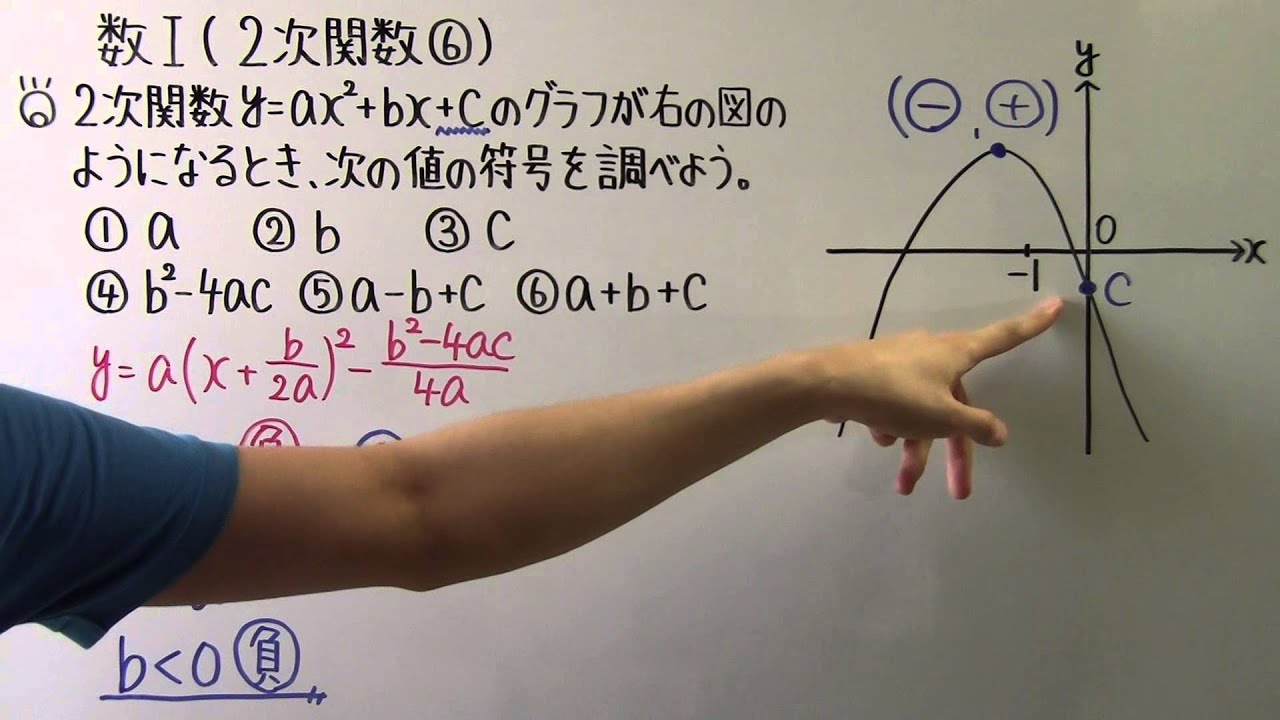 数I(2次関数⑥)
2次関数 y=ax²+bx+Cのグラフが右の図の
ようになるとき、次の値の符号を調べよう。
① a ② b ③ C
④ b²-4ac ⑤ a-b+C ⑥ a+b+C
y=a(x+b/2a)²-b²-4ac/4a
負
b<0 負
y
(−,+)
0
x
-1
C